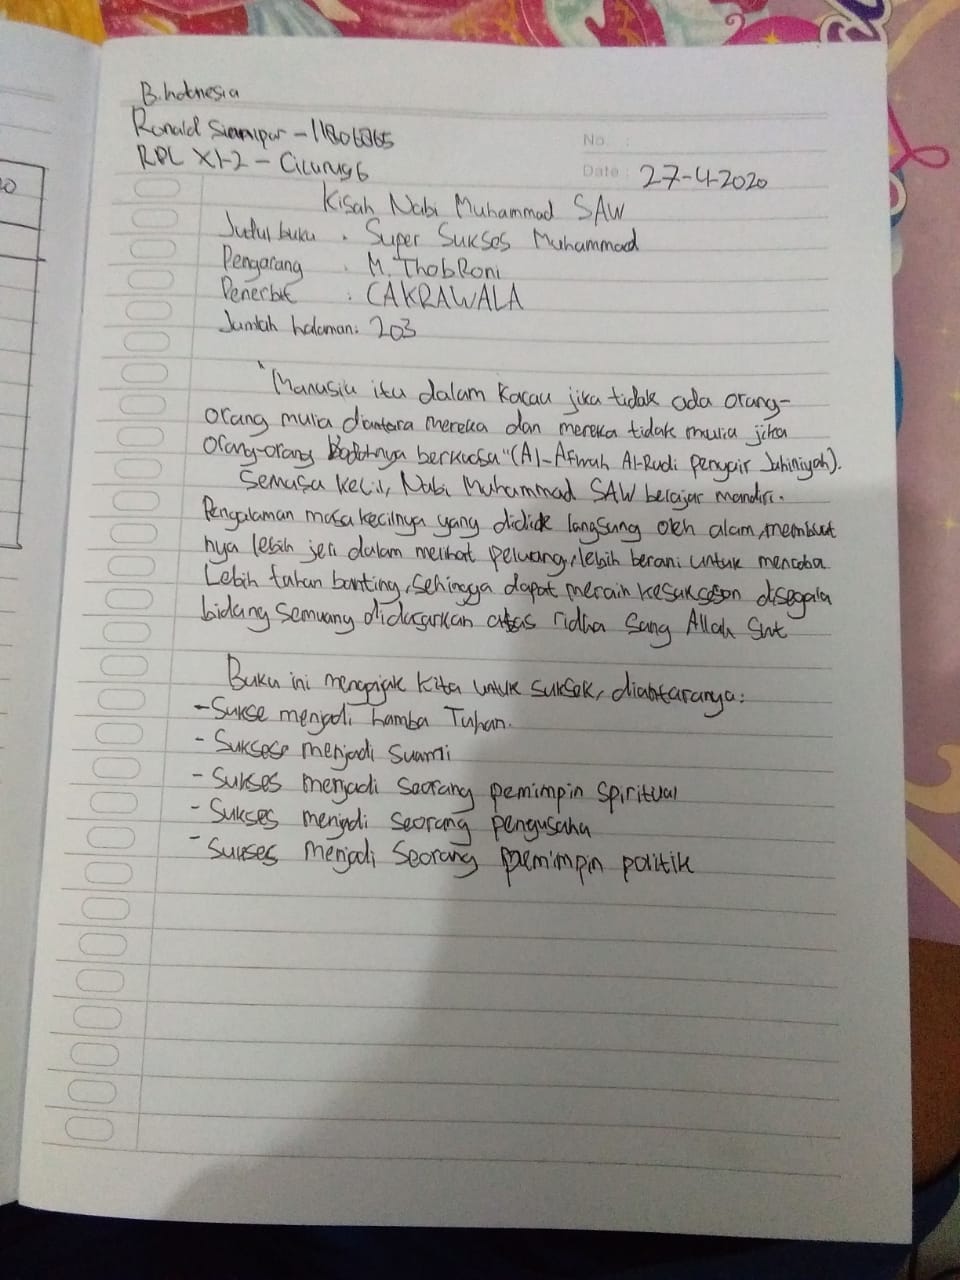 B. Indonesia
Ronald Sianipar - 11806865
RPL XI-2 - Cicurug 6
No. :
Date : 27-4-2020
Kisah Nabi Muhammad SAW
Judul buku : Super Sukses Muhammad
Pengarang : M. ThobRoni
Penerbit : CAKRAWALA
Jumlah halaman: 203
"Manusia itu dalam kacau jika tidak ada orang-
orang mulia diantara mereka dan mereka tidak mulia jika
orang-orang bodohnya berkuasa" (Al-Afwah Al-Audi penyair Jahiliyah).
Semasa kecil, Nabi Muhammad SAW belajar mandiri.
Pengalaman masa kecilnya yang dididik langsung oleh alam, membuat
nya lebih jeli dalam melihat peluang, lebih berani untuk mencoba
Lebih tahan banting, sehingga dapat meraih kesuksesan disegala
bidang semuanya didasarkan atas ridha Sang Allah Swt
Buku ini mengajak kita untuk suksek, diantaranya:
- Sukse menjadi hamba Tuhan.
- Suksese menjadi suami
- Sukses menjadi seorang pemimpin spiritual
- Sukses menjadi seorang pengusaha
- Sukses menjadi seorang pemimpin politik